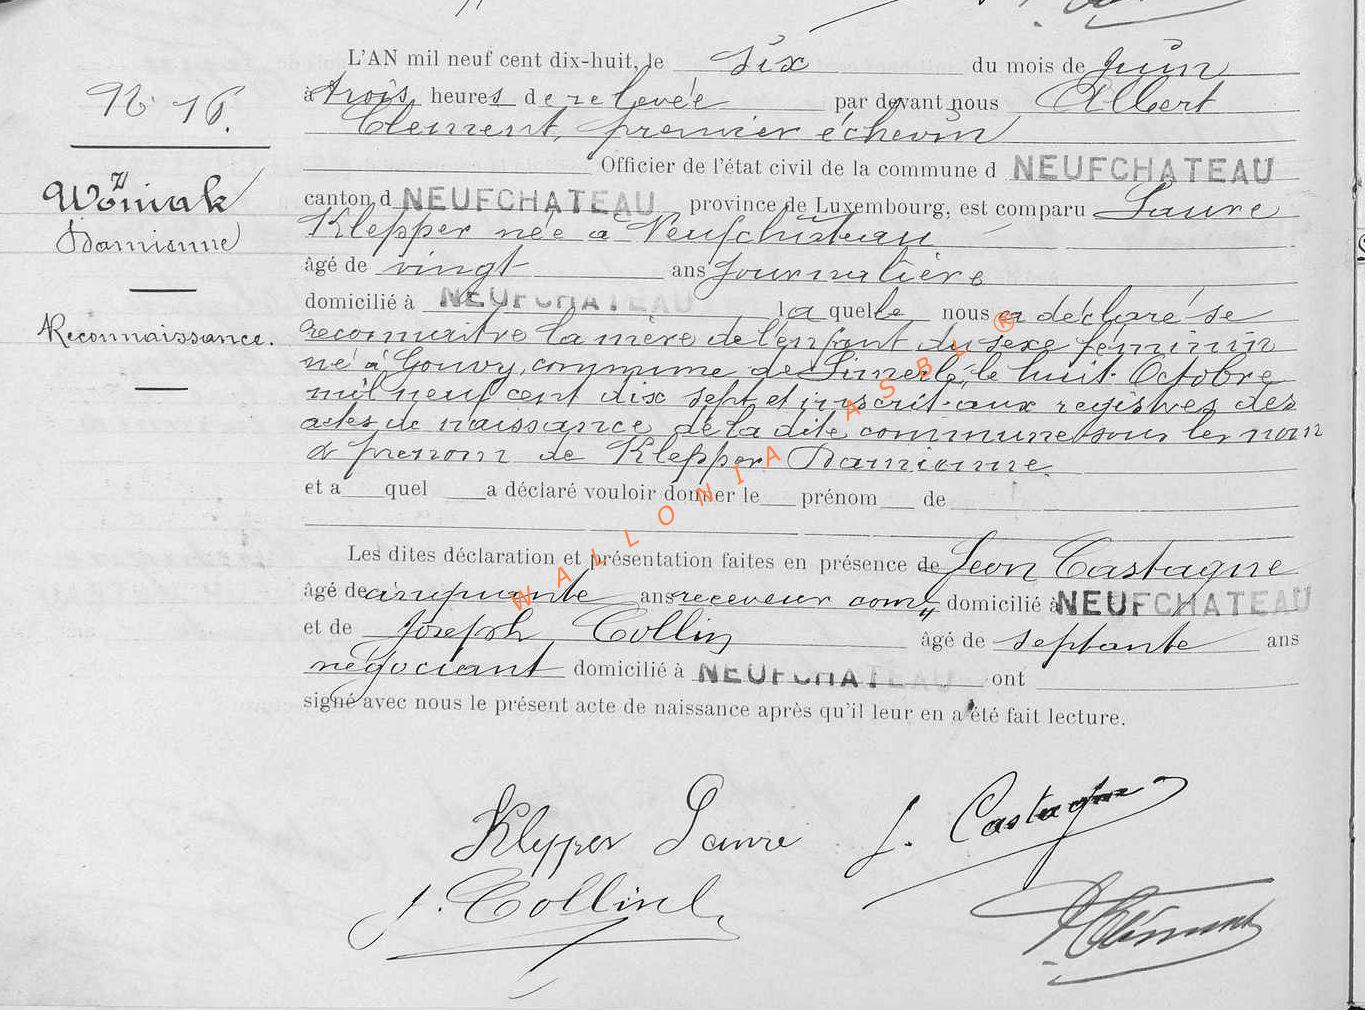 L'AN mil neuf cent dix-huit, le six du mois de juin
N. 16.
à trois heures de relevée par devant nous Albert
Clement, premier échevin
Officier de l'état civil de la commune d NEUFCHATEAU
Woźniak
canton d NEUFCHATEAU province de Luxembourg, est comparu Laure
Damienne
Klepper née à Neufchâteau
âgé de vingt ans journalière
domicilié à NEUFCHATEAU laquelle nous a déclaré se
Reconnaissance.
reconnaitre la mère de l'enfant du sexe féminin
né à Gouvy, commune de Limerlé, le huit Octobre
mil neuf cent dix sept et inscrit aux registres des
actes de naissance de la dite commune sous les nom
& prenom de Klepper Damienne
et a quel a déclaré vouloir donner le prénom de
Les dites déclaration et présentation faites en présence de Jean Castagne
âgé de cinquante ans receveur com domicilié à NEUFCHATEAU
et de Joseph Collin âgé de septante ans
négociant domicilié à NEUFCHATEAU ont
signé avec nous le présent acte de naissance après qu'il leur en a été fait lecture.
Klepper Laure J. Castagne
J. Collin
A Clément
WALLONIA ASBL ®